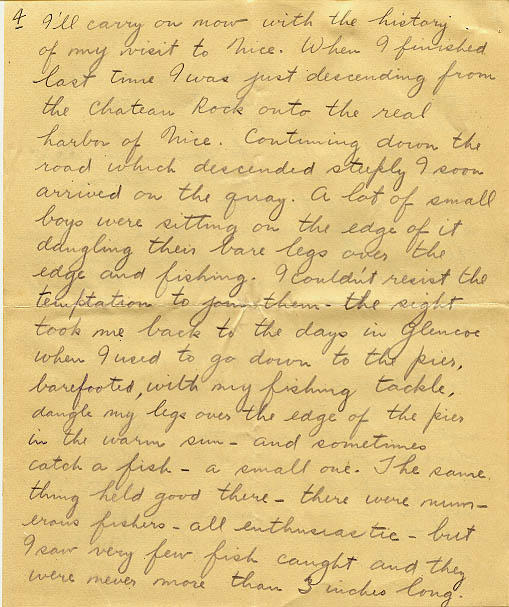 4 I'll carry on now with the history
of my visit to Nice. When I finished
last time I was just descending from
the Chateau Rock onto the real
harbor of Nice. Continuing down the
road which descended steeply I soon
arrived on the quay. A lot of small
boys were sitting on the edge of it
dangling their bare legs over the
edge and fishing. I couldn't resist the
temptation to join them - the sight
took me back to the days in Glencoe
when I used to go down to the pier,
barefooted, with my fishing tackle,
dangle my legs over the edge of the pier
in the warm sun - and sometimes
catch a fish - a small one. The same
thing held good there - there were num-
erous fishers - all enthusiastic - but
I saw very few fish caught and they
were never more than 3 inches long.